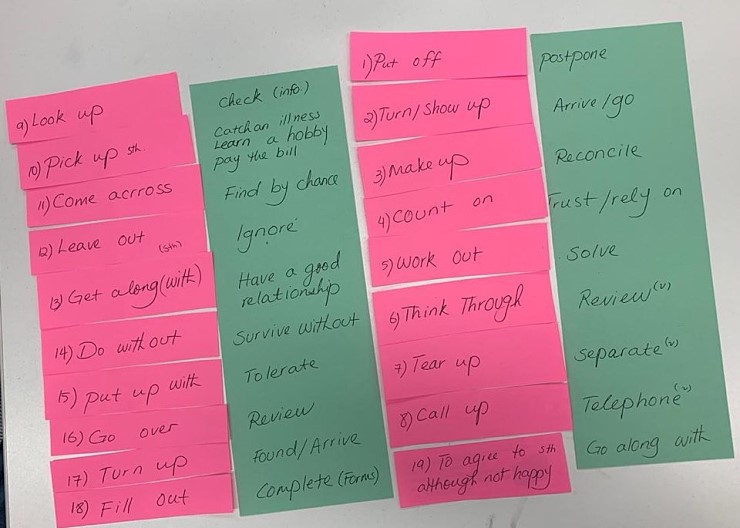 1) Put off
postpone
2) Turn/Show up
Arrive/go
3) Make up
Reconcile
4) Count on
Trust/rely on
5) Work Out
Solve
6) Think Through
Review (v)
7) Tear up
separate (v)
8) Call up
Telephone (v)
19) To agree to sth
although not happy
Go along with
9) Look up
Check (info.)
10) Pick up sth.
Catch an illness
Learn a hobby
pay the bill
11) Come acrross
Find by chance
12) Leave out (sth)
Ignore
13) Get along (with)
Have a good
relationship
14) Do without
Survive without
15) put up with
Tolerate
16) Go over
Review
17) Turn up
Found/Arrive
18) Fill Out
Complete (Forms)